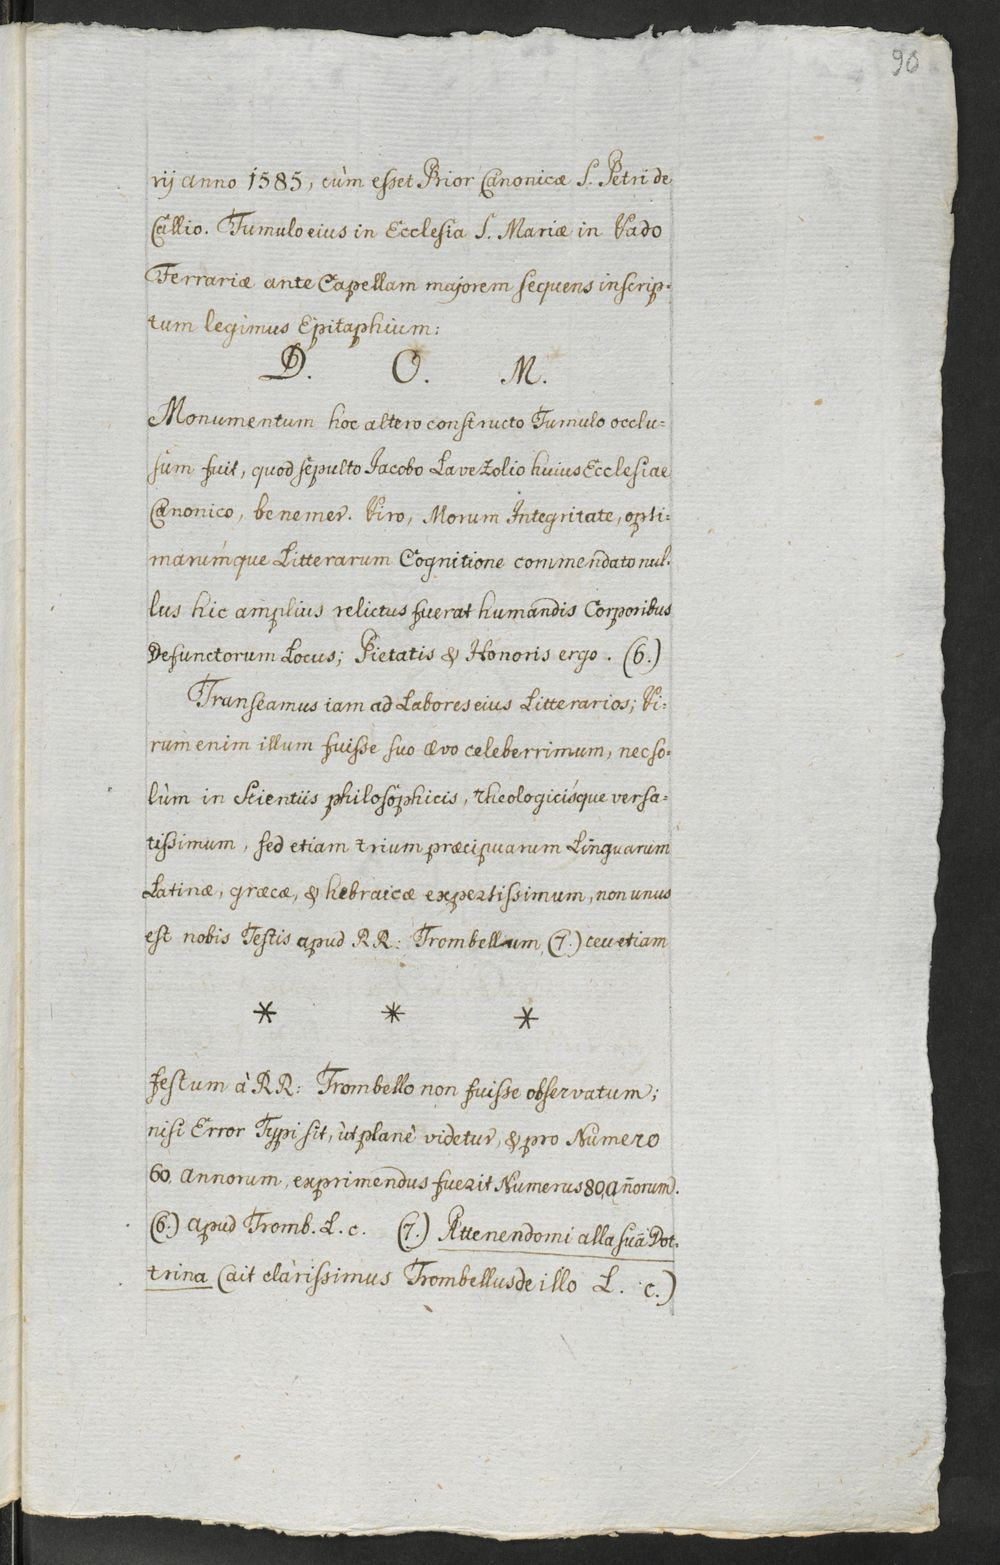 90
rij anno 1585, cùm esset Prior Canonicæ S. Petri de
Callio. Tumulo eius in Ecclesia S. Mariæ in Vado
Ferrariæ ante Capellam majorem sequens inscrip=
tum legimus Epitaphium:
D. O. M.
Monumentum hoc altero constructo Tumulo occlu=
sum fuit, quod sepulto Jacobo Lavezolio huius Ecclesiae
Canonico, benemer. Viro, Morum Integritate, opti=
marumque Litterarum Cognitione commendato nul=
lus hic amplius relictus fuerat humandis Corporibus
Defunctorum Locus; Pietatis & Honoris ergo. (6.)
Transeamus iam ad Labores eius Litterarios; Vi=
rum enim illum fuisse suo ævo celeberrimum, nec so=
lùm in Scientiis philosophicis, theologicisque versa=
tissimum, sed etiam trium præcipuarum Linguarum
Latinæ, græcæ, & hebraicæ expertissimum, non unus
est nobis Testis apud RR: Trombellum, (7.) ceu etiam
* * *
festum à RR: Trombello non fuisse observatum;
nisi Error Typi sit, ùt planè videtur, & pro Numero
60. Annorum, exprimendus fuerit Numerus 80. añorum.
(6.) apud Tromb. L. c. (7.) Attenendomi alla sua Dot=
trina (ait clarissimus Trombellus de illo L. c.)